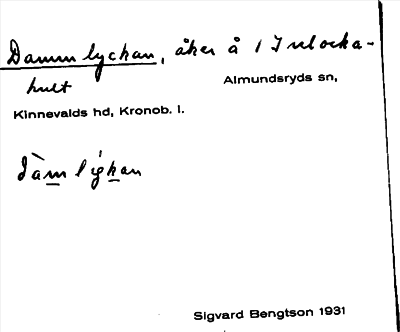 Dammlyckan, åker å 1 Inlocka-
hult Almundsryds sn,
Kinnevalds hd, Kronob. l.
Sigvard Bengtson 1931